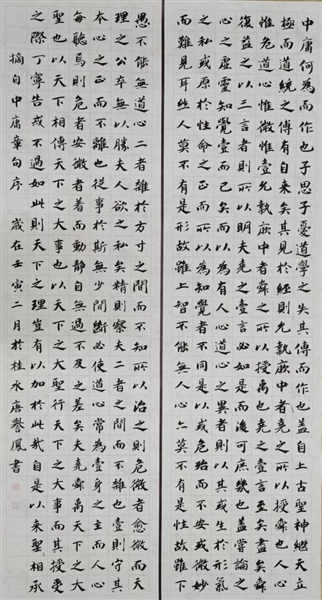 中庸何為而作也子思子憂道學之失其傳而作也蓋自上古聖神繼天立
極而道統之傳有自來矣其見於經則允執厥中者堯之所以授舜也人心
惟危道心惟微惟壹允執厥中者舜之所以授禹也堯之壹言至矣盡矣舜
復益之以三言者則所以明夫堯之壹言必如是而後可庶幾也蓋嘗論之
心之虛靈知覺壹而已矣而以為有人心道心之異者則以其或生於形氣
之私或原於性命之正而所以為知覺者不同是以或危殆而不安或微妙
而難見耳然人莫不有是形故雖上智不能無人心亦莫不有是性故雖下
愚不能無道心二者雜於方寸之間而不知所以治之則危微者愈微而天
理之公卒無以勝夫人欲之私矣精則察夫二者之間而不雜也壹則守其
本心之正而不離也從事於斯無少間斷必使道心常為壹身之主而人心
每聽焉則危者安微者著而動靜自無過不及之差矣夫堯舜禹天下之大
聖也以天下相傳天下之大事也以天下之大聖行天下之大事而其授受
之際丁寧告戒不過如此則天下之理豈有以加於此哉自是以來聖相承
摘自中庸章句序 歲在壬寅二月於桂水唐譽鳳書